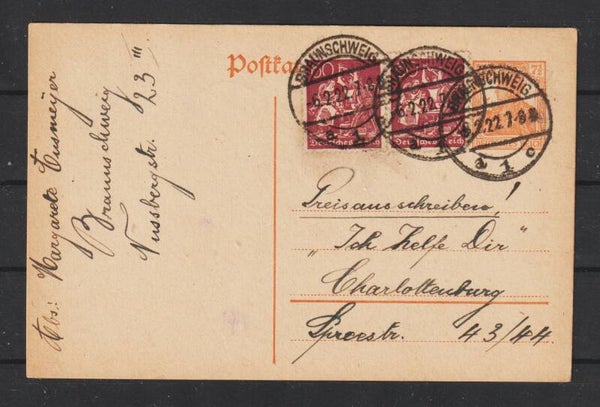 Abs: Margarete Eusmeyer
Braunschweig
Nussbergstr. 23 III
Postka
BRAUNSCHWEIG
-6.2.22.7-8
a 1 c
Deutsches Reich
BRAUNSCHWEIG
-6.2.22.7
Deutsches Reich
BRAUNSCHWEIG
6.2.22.7-8
a 1 c
7½
Preisausschreiben!
„Ich helfe Dir"
Charlottenburg
Spreestr. 43/44